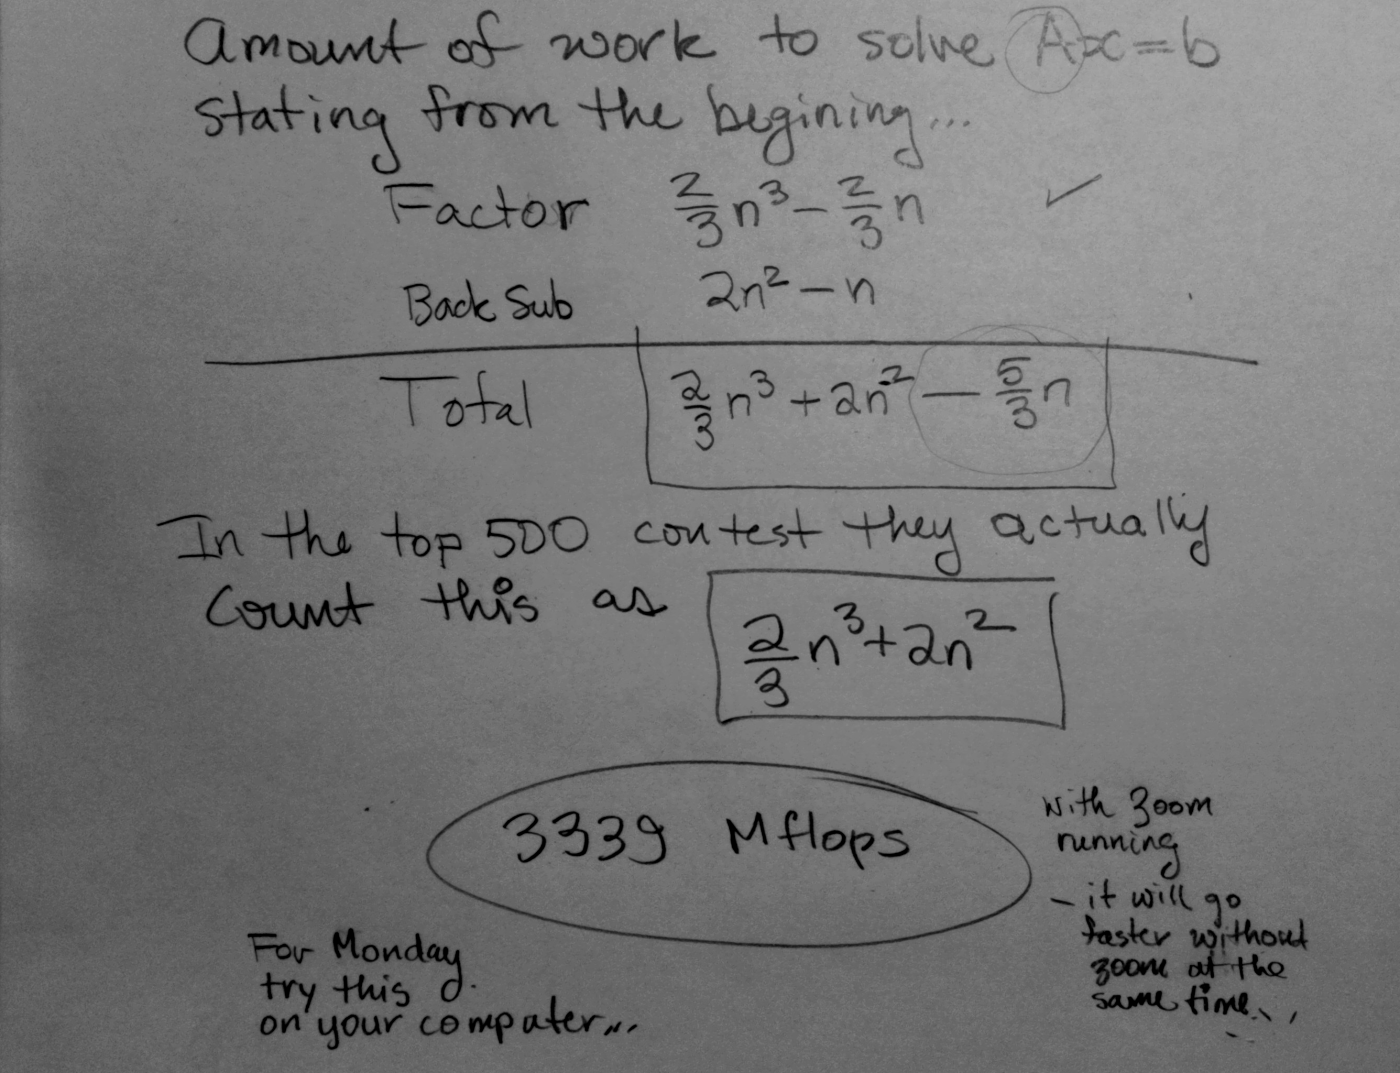 Amount of work to solve Ax=b
stating from the begining...
Factor 2/3 n³ - 2/3 n ✓
Back Sub 2n² - n
Total 2/3 n³ + 2n² - 5/3 n
In the top 500 contest they actually
count this as 2/3 n³ + 2n²
3339 Mflops
with zoom
running
- it will go
faster without
zoom at the
same time...
For Monday
try this
on your computer...